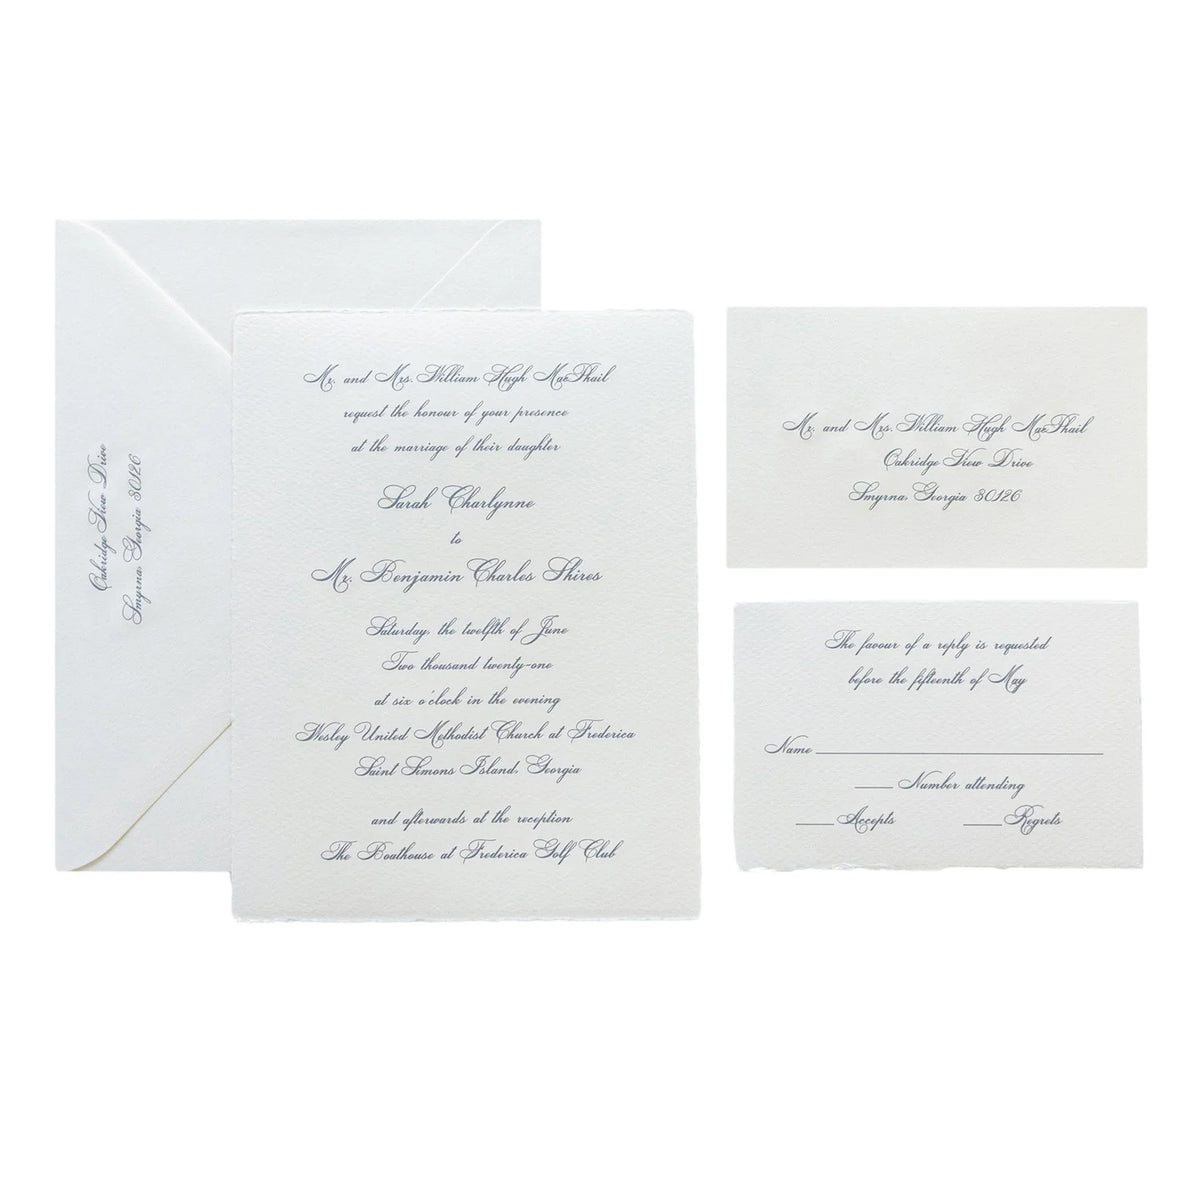 Oakridge View Drive
Smyrna, Georgia 30126
Mr. and Mrs. William Hugh MacPhail
request the honour of your presence
at the marriage of their daughter
Sarah Charlynne
to
Mr. Benjamin Charles Shires
Saturday, the twelfth of June
Two thousand twenty-one
at six o'clock in the evening
Wesley United Methodist Church at Frederica
Saint Simons Island, Georgia
and afterwards at the reception
The Boathouse at Frederica Golf Club
Mr. and Mrs. William Hugh MacPhail
Oakridge View Drive
Smyrna, Georgia 30126
The favour of a reply is requested
before the fifteenth of May
Name
Number attending
Accepts Regrets